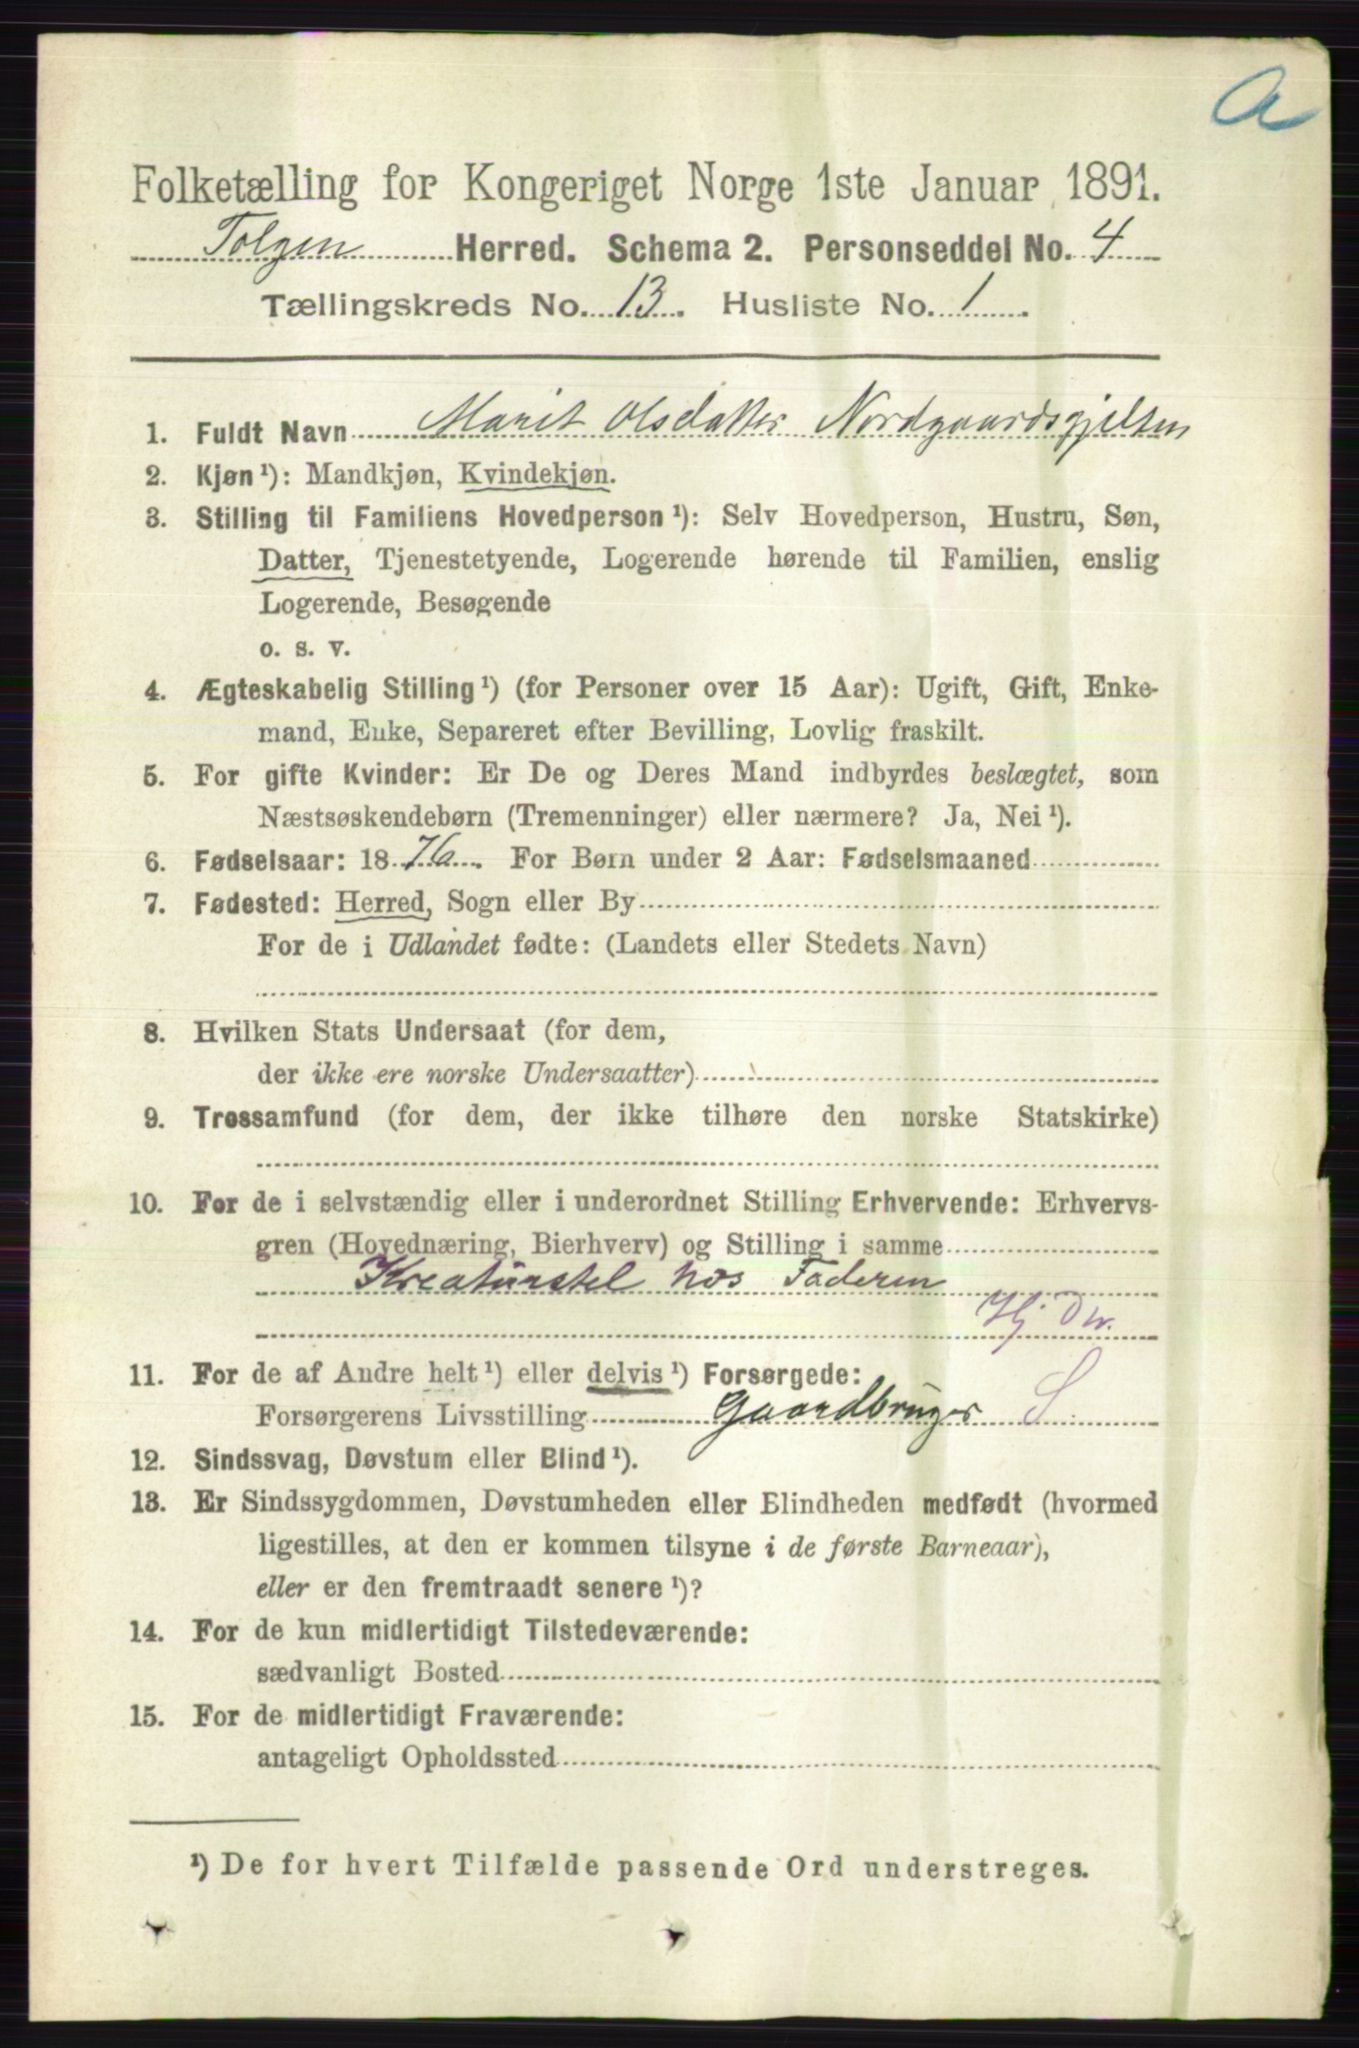 a
Folketælling for Kongeriget Norge 1ste Januar 1891.
Tolgen Herred. Schema 2. Personseddel No. 4
Tællingskreds No. 13. Husliste No. 1
1. Fuldt Navn Marit Olsdatter Nordgaardsgjelten
2. Kjøn¹): Mandkjøn, Kvindekjøn.
3. Stilling til Familiens Hovedperson¹): Selv Hovedperson, Hustru, Søn,
Datter, Tjenestetyende, Logerende hørende til Familien, enslig
Logerende, Besøgende
o. s. v.
4. Ægteskabelig Stilling¹) (for Personer over 15 Aar): Ugift, Gift, Enke-
mand, Enke, Separeret efter Bevilling, Lovlig fraskilt.
5. For gifte Kvinder: Er De og Deres Mand indbyrdes beslægtet, som
Næstsøskendebørn (Tremenninger) eller nærmere? Ja, Nei¹).
6. Fødselsaar: 1876. For Børn under 2 Aar: Fødselsmaaned
7. Fødested: Herred, Sogn eller By
For de i Udlandet fødte: (Landets eller Stedets Navn)
8. Hvilken Stats Undersaat (for dem,
der ikke ere norske Undersaatter)
9. Trossamfund (for dem, der ikke tilhøre den norske Statskirke)
10. For de i selvstændig eller i underordnet Stilling Erhvervende: Erhvervs-
gren (Hovednæring, Bierhverv) og Stilling i samme
Kreaturstel hos Faderen
Hj Dtr.
11. For de af Andre helt¹) eller delvis¹) Forsørgede:
Forsørgerens Livsstilling Gaardbruger S
12. Sindssvag, Døvstum eller Blind¹).
13. Er Sindssygdommen, Døvstumheden eller Blindheden medfødt (hvormed
ligestilles, at den er kommen tilsyne i de første Barneaar),
eller er den fremtraadt senere¹)?
14. For de kun midlertidigt Tilstedeværende:
sædvanligt Bosted
15. For de midlertidigt Fraværende:
antageligt Opholdssted
¹) De for hvert Tilfælde passende Ord understreges.